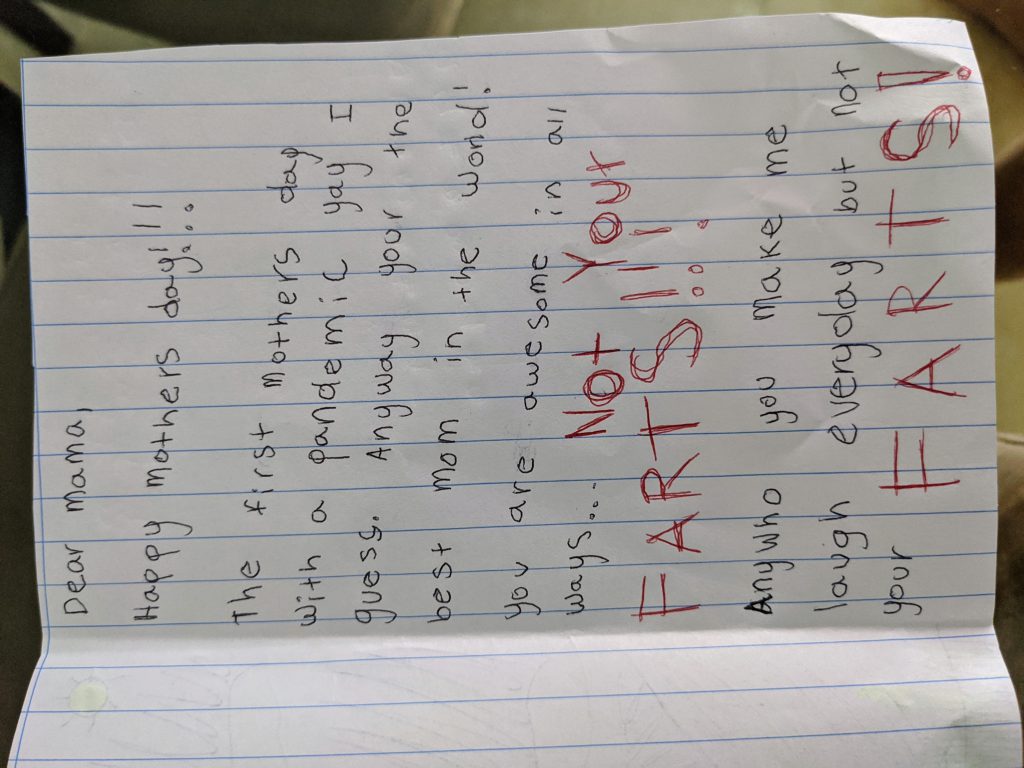 Dear Mama,
Happy mothers day!!!
The first mothers day
with a pandemic yay I
guess. Anyway your the
best mom in the world!
you are awesome in all
ways... Not Your
FARTS!!!
Anywho you make me
laugh everyday but not
your FARTS!